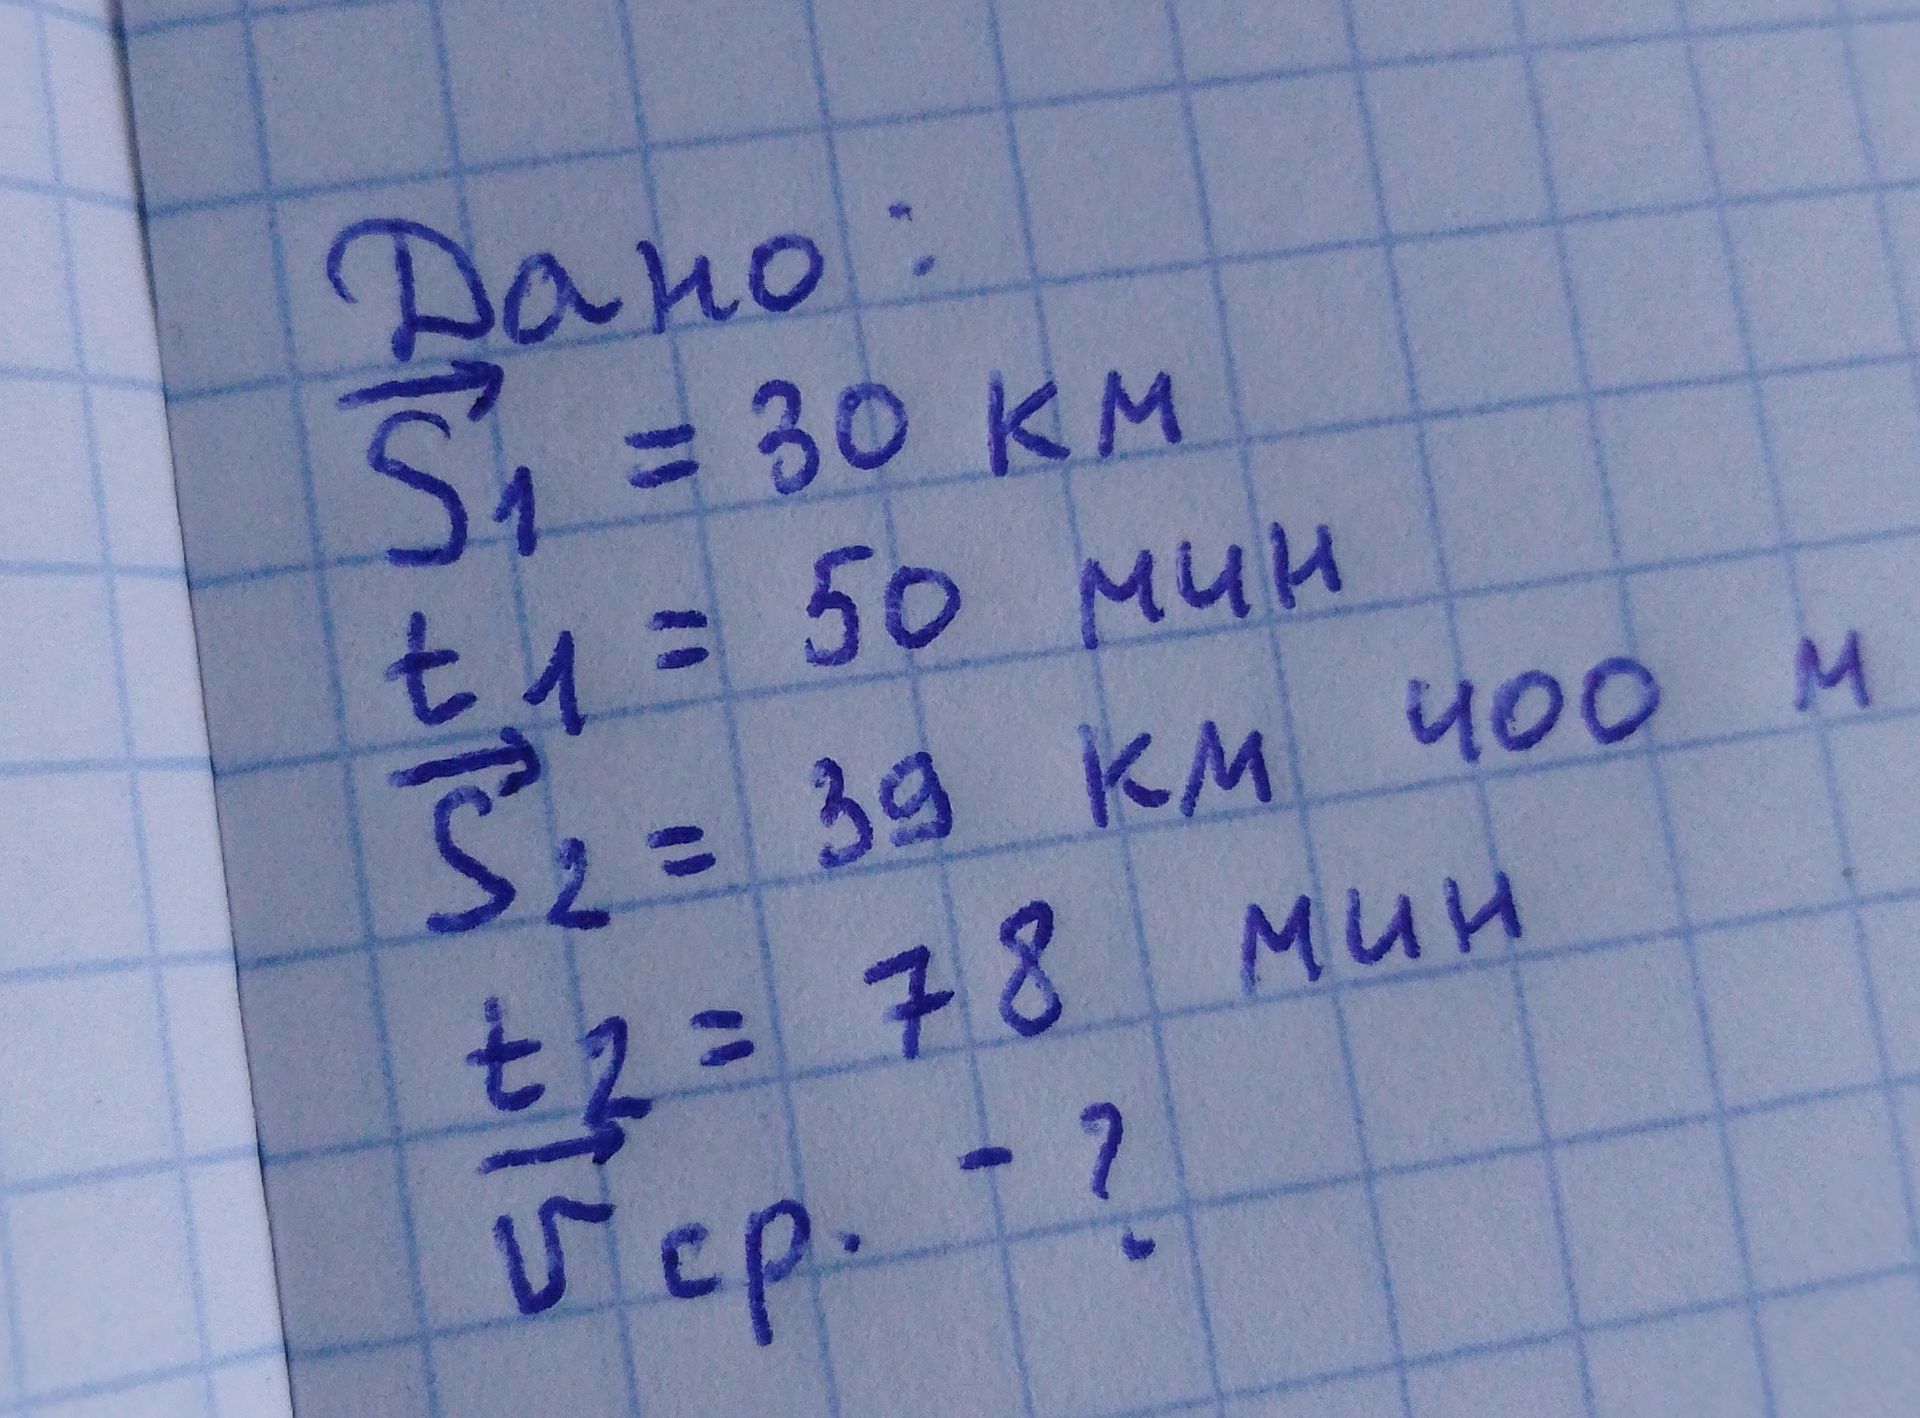 Дано:
S₁ = 30 км
t₁ = 50 мин
S₂ = 39 км 400 м
t₂ = 78 мин
v ср. - ?